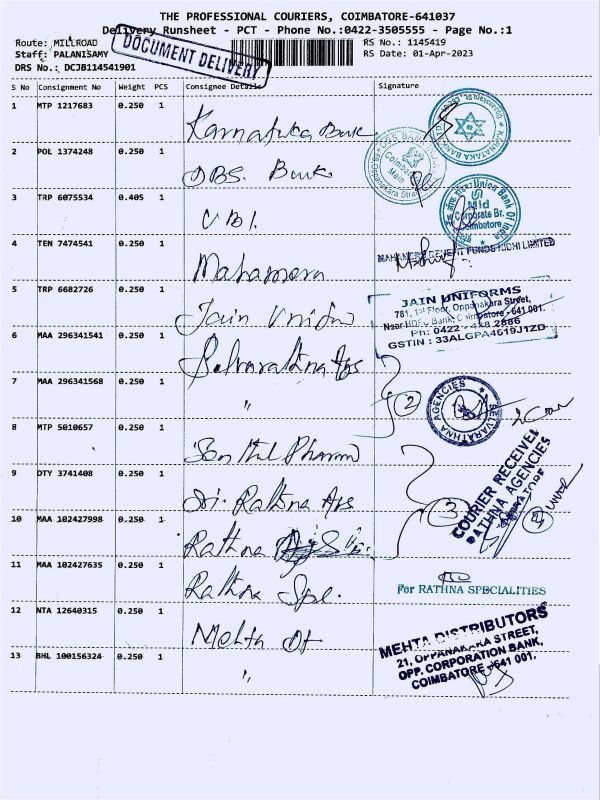 THE PROFESSIONAL COURIERS, COIMBATORE-641037
Delivery Runsheet - PCT - Phone No.:0422-3505555 - Page No.:1
Route: MILLROAD
RS No.: 1145419
Staff: PALANISAMY
RS Date: 01-Apr-2023
DRS No.: DCJB114541901
DOCUMENT DELIVERY
S No Consignment No Weight PCS Consignee Details Signature
1 MTP 1217683 0.250 1 Karnataka Bank
KARNATAKA BANK
2 POL 1374248 0.250 1 DBS. Bank
Coimbatore Main
3 TRP 6075534 0.405 1 UBI.
Union Bank Of India
Mid Corporate Br. Coimbatore
4 TEN 7474541 0.250 1 Mahamera
NIDHI LIMITED
5 TRP 6682726 0.250 1 Jain Unifor
JAIN UNIFORMS
781, 1st Floor, Oppanakara Street,
Near HDFC Bank, Coimbatore - 641 001.
Ph: 0422 2886
GSTIN : 33ALGPA4619J1ZD
6 MAA 296341541 0.250 1 Selvarathna Ags
7 MAA 296341568 0.250 1 "
2
SELVARATHNA AGENCIES
8 MTP 5010657 0.250 1 Pharma
9 DTY 3741408 0.250 1 Sri. Rathna Ags
3
COURIER RECEIVED
RATHNA AGENCIES
10 MAA 102427998 0.250 1 Rathna
11 MAA 102427635 0.250 1 Rathna Spl.
For RATHNA SPECIALITIES
12 NTA 12640315 0.250 1 Mehta Dt
MEHTA DISTRIBUTORS
21, OPPANAKARA STREET,
OPP. CORPORATION BANK,
COIMBATORE - 641 001.
13 BHL 100156324 0.250 1 "